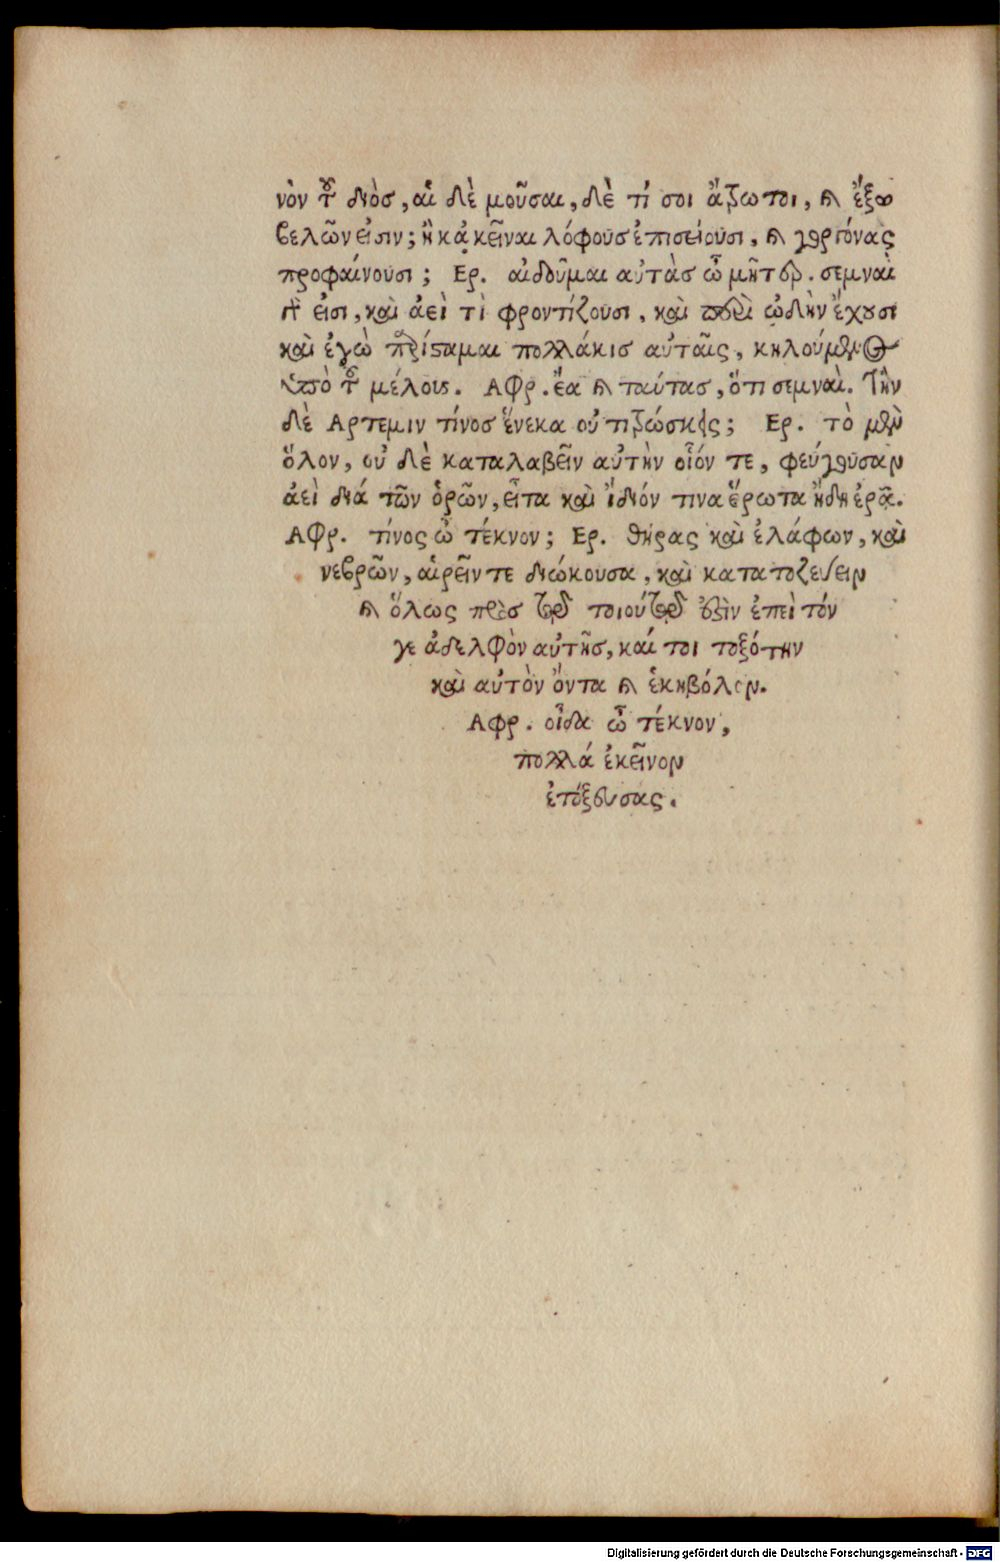 νὸν τοῦ διὸσ, αἱ δὲ μοῦσαι, δὲ τί σοι ἄτρωτοι, καὶ ἔξω
βελῶν εἰσιν; ἢ κἀκεῖναι λόφουσ ἐπισείουσι, καὶ γοργόνας
προφαίνουσι; Ερ. αἰδοῦμαι αὐτὰσ ὦ μῆτερ. σεμναὶ
γάρ εἰσι, καὶ ἀεὶ τὶ φροντίζουσι, καὶ περὶ ὠδὴν ἔχουσι
καὶ ἐγὼ παρίσταμαι πολλάκισ αὐταῖς, κηλούμενος
ὑπὸ τοῦ μέλους. Αφρ. ἔα καὶ ταύτασ, ὅτι σεμναὶ. Τὴν
δὲ Αρτεμιν τίνοσ ἕνεκα οὐ τιτρώσκεις; Ερ. τὸ μὲν
ὅλον, οὐ δὲ καταλαβεῖν αὐτὴν οἷόν τε, φεύγουσαν
ἀεὶ διά τῶν ὀρῶν, εἶτα καὶ ἴδιόν τινα ἔρωτα ἤδη ἐρᾷ.
Αφρ. τίνος ὦ τέκνον; Ερ. θήρας καὶ ἐλάφων, καὶ
νεβρῶν, αἱρεῖν τε διώκουσα, καὶ κατατοξεύειν
καὶ ὅλως πρὸσ τῷ τοιούτῳ ἐστὶν ἐπεὶ τόν
γε ἀδελφὸν αὐτῆσ, καί τοι τοξότην
καὶ αὐτὸν ὄντα καὶ ἑκηβόλον.
Αφρ. οἶδα ὦ τέκνον,
πολλά ἐκεῖνον
ἐτόξευσας.
Digitalisierung gefördert durch die Deutsche Forschungsgemeinschaft - DFG